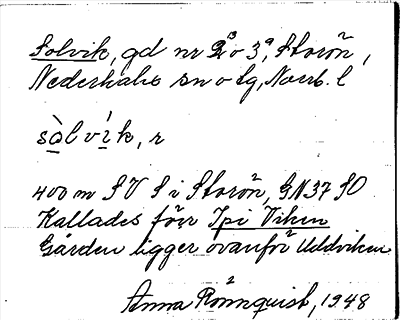 Solvik, gd nr 2³ o 3⁹, Storön,
Nederkalix sn o tg, Norrb. l
sòlvìk, r
400 m SV S i Storön, GN37 SO
Kallades förr Ipi Viken
Gården ligger ovanför Uddviken
Anna Rönnquist, 1948